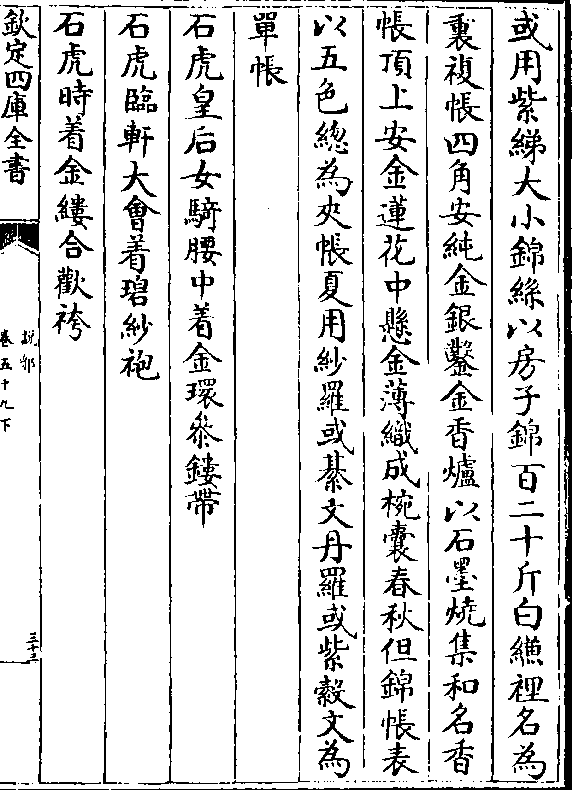 或用紫綈大小錦絲以房子錦百二十斤白縑裡名為
裏複帳四角安純金銀鑿金香爐以石墨燒集和名香
帳頂上安金蓮花中懸金薄織成椀囊春秋但錦帳表
以五色總為夾帳夏用紗羅或綦文丹羅或紫縠文為
單帳
石虎皇后女騎腰中着金環叅鏤帶
石虎臨軒大會着碧紗袍
石虎時着金縷合歡袴
欽定四庫全書
說郛
卷五十九下
三十三